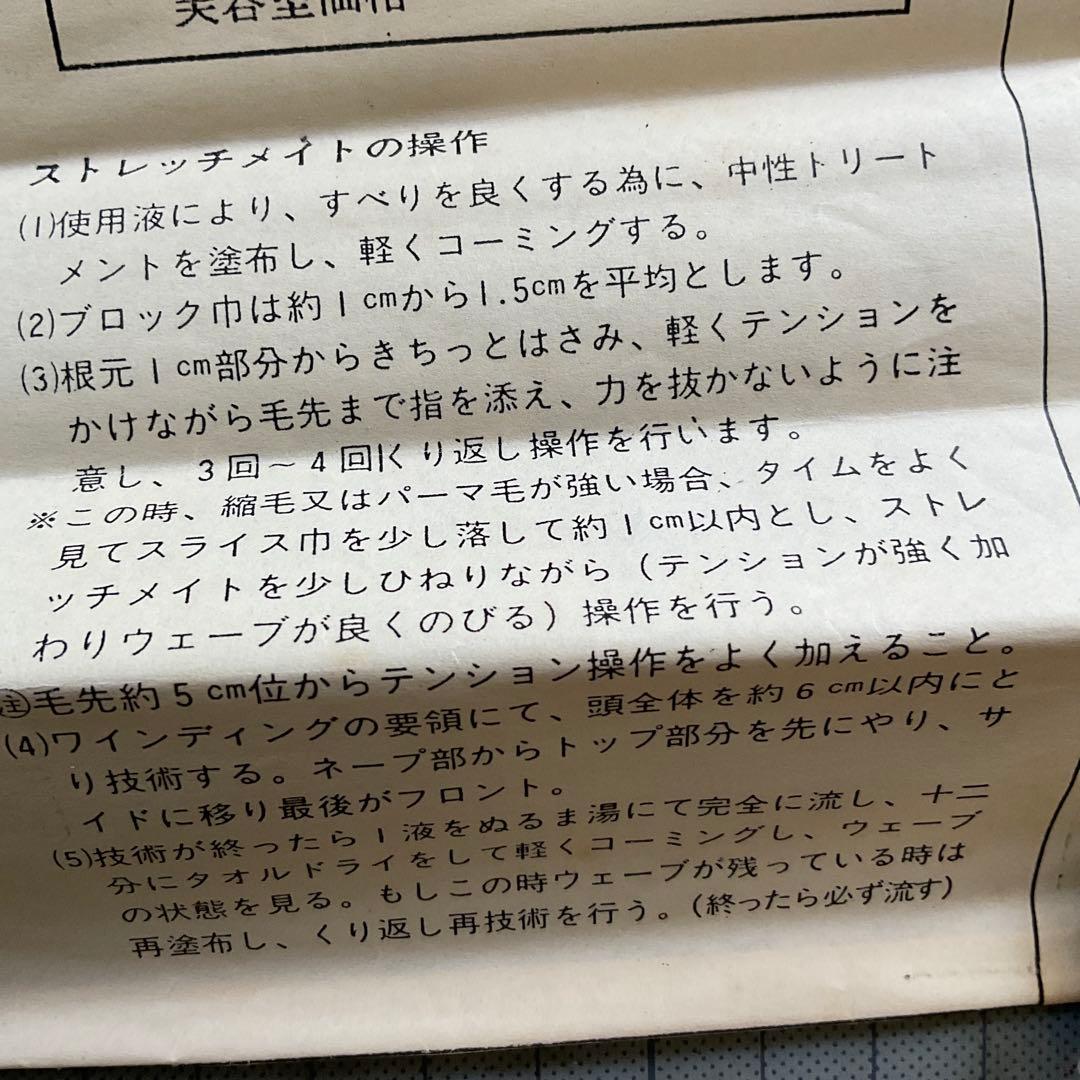 美容室価格
ストレッチメイトの操作
(1)使用液により、すべりを良くする為に、中性トリート
メントを塗布し、軽くコーミングする。
(2)ブロック巾は約1cmから1.5cmを平均とします。
(3)根元1cm部分からきちっとはさみ、軽くテンションを
かけながら毛先まで指を添え、力を抜かないように注
意し、3回〜4回くり返し操作を行います。
※この時、縮毛又はパーマ毛が強い場合、タイムをよく
見てスライス巾を少し落して約1cm以内とし、ストレ
ッチメイトを少しひねりながら（テンションが強く加
わりウェーブが良くのびる）操作を行う。
㊟毛先約5cm位からテンション操作をよく加えること。
(4)ワインディングの要領にて、頭全体を約6cm以内にと
り技術する。ネープ部からトップ部分を先にやり、サ
イドに移り最後がフロント。
(5)技術が終ったら1液をぬるま湯にて完全に流し、十二
分にタオルドライをして軽くコーミングし、ウェーブ
の状態を見る。もしこの時ウェーブが残っている時は
再塗布し、くり返し再技術を行う。（終ったら必ず流す）